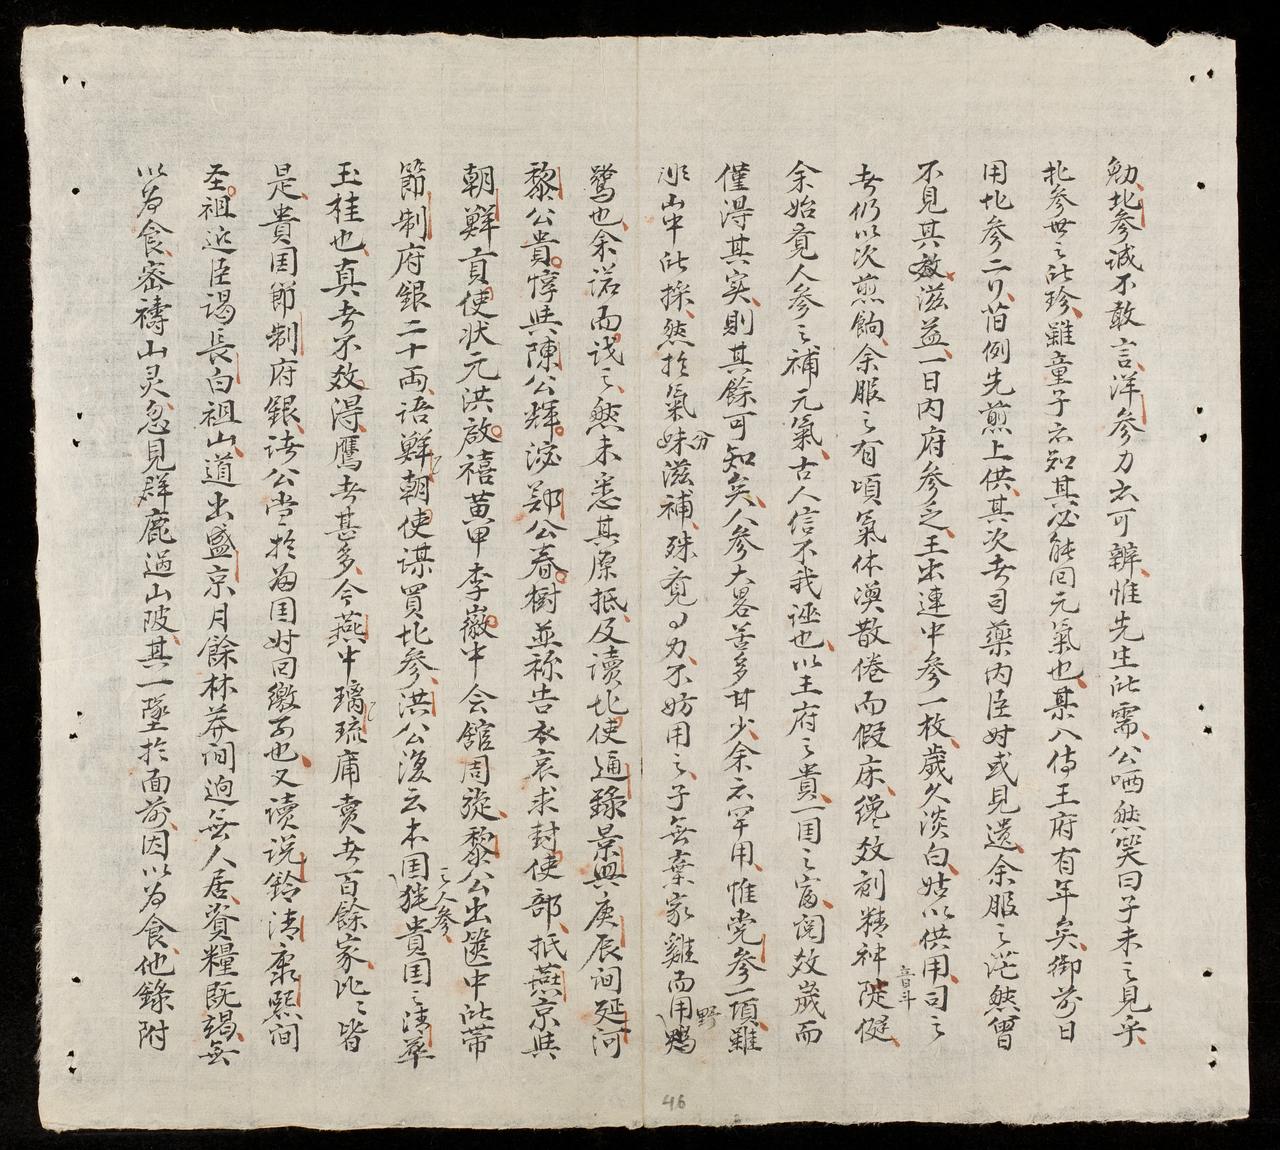 勉北參誠不敢言洋參力亦可辨惟先生所需公哂然笑曰子未之見乎
北參世之所珍雖童子亦知其必能回元氣也某入侍王府有年矣御前日
用北參二刀舊例先煎上供其次者司藥内臣时或見遺余服之茫然曾
不見其效滋益一日内府參乏王出連中參一枚歲久淡白姑以供用司之
者仍以次煎餉余服之有頃氣体渙散倦而假床纔效刻精神陡㨂音斗
余始覓人參之補元氣古人信不我誣也以王府之貴一囯之富閱效歲而
僅得其实則其餘可知矣人參大畧苦多甘少余亦罕用惟党參一項雖
非山中所採然於氣味分滋補殊覓得力不妨用之子無棄家雞而用野
鶩也余諾而識之然未悉其原抵及讀北使通錄景興庚辰间延河
黎公貴惇與陳公輝淧鄭公春樹並祢告衣哀求封使部抵燕京與
朝鮮貢使状元洪啟禧黄甲李徽中会舘周旋黎公出篋中所带
節制府銀二十両語鮮朝使謀買北參洪公復云本囯之人參犹貴囯之清華
玉桂也真者不效得鷹者甚多今燕中璃琉庯賣者百餘家比比皆
是貴囯節制府銀諸公当於菊囯时回繳可也又讀说鈴清康熙间
圣祖近臣谒長白祖山道出盛京月餘林莽间逈無人居資糧既竭無
以为食密禱山灵忽見群鹿過山陂其一墜於面前因以为食他錄附
46